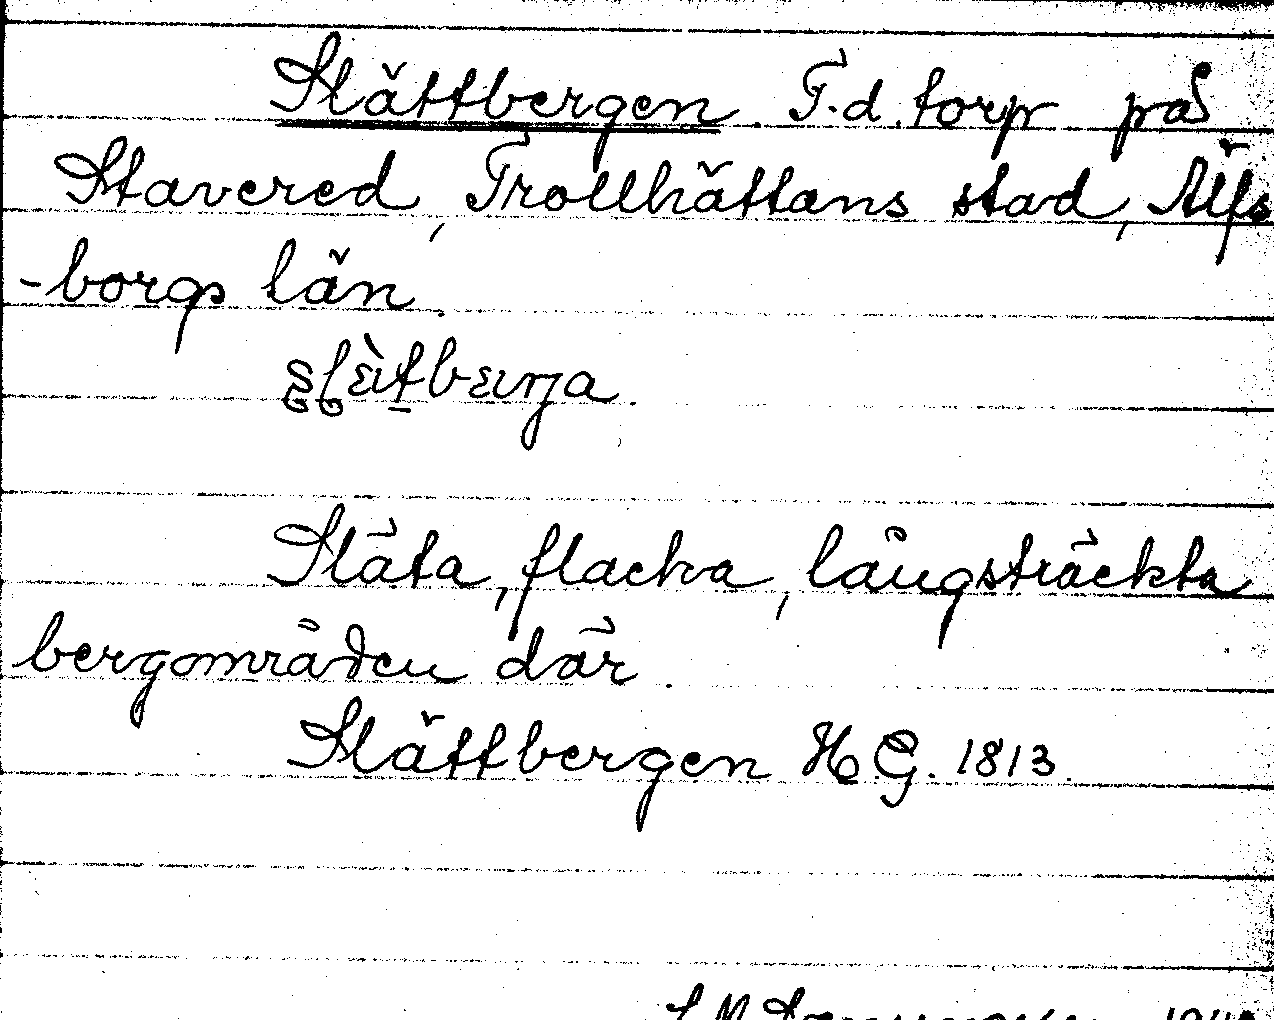 Slättbergen. F.d. torp på
Stavered, Trollhättans stad, Älfs
-borgs län.
Släta, flacka, långsträckta
bergområden där.
Slättbergen H G. 1813.